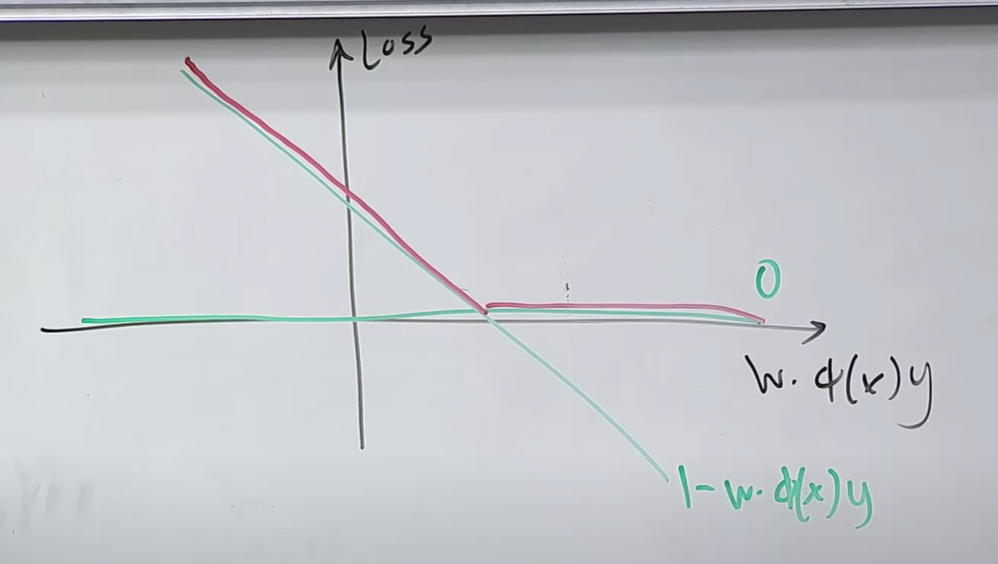 Loss
0
w. ϕ(x)y
1-w. ϕ(x)y